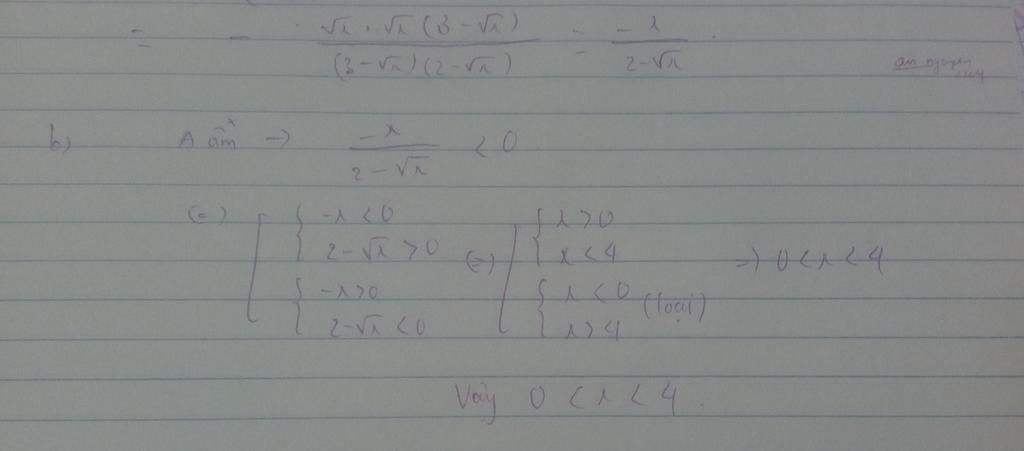 = - √x . √x (3 - √x) / (3 - √x)(2 - √x) = -x / 2 - √x .
b) A âm -> -x / 2 - √x < 0
(=) [ { -x < 0 (=) [ { x > 0
2 - √x > 0 x < 4 => 0 < x < 4
{ -x > 0 { x < 0 (loại)
2 - √x < 0 x > 4
Vậy 0 < x < 4 .